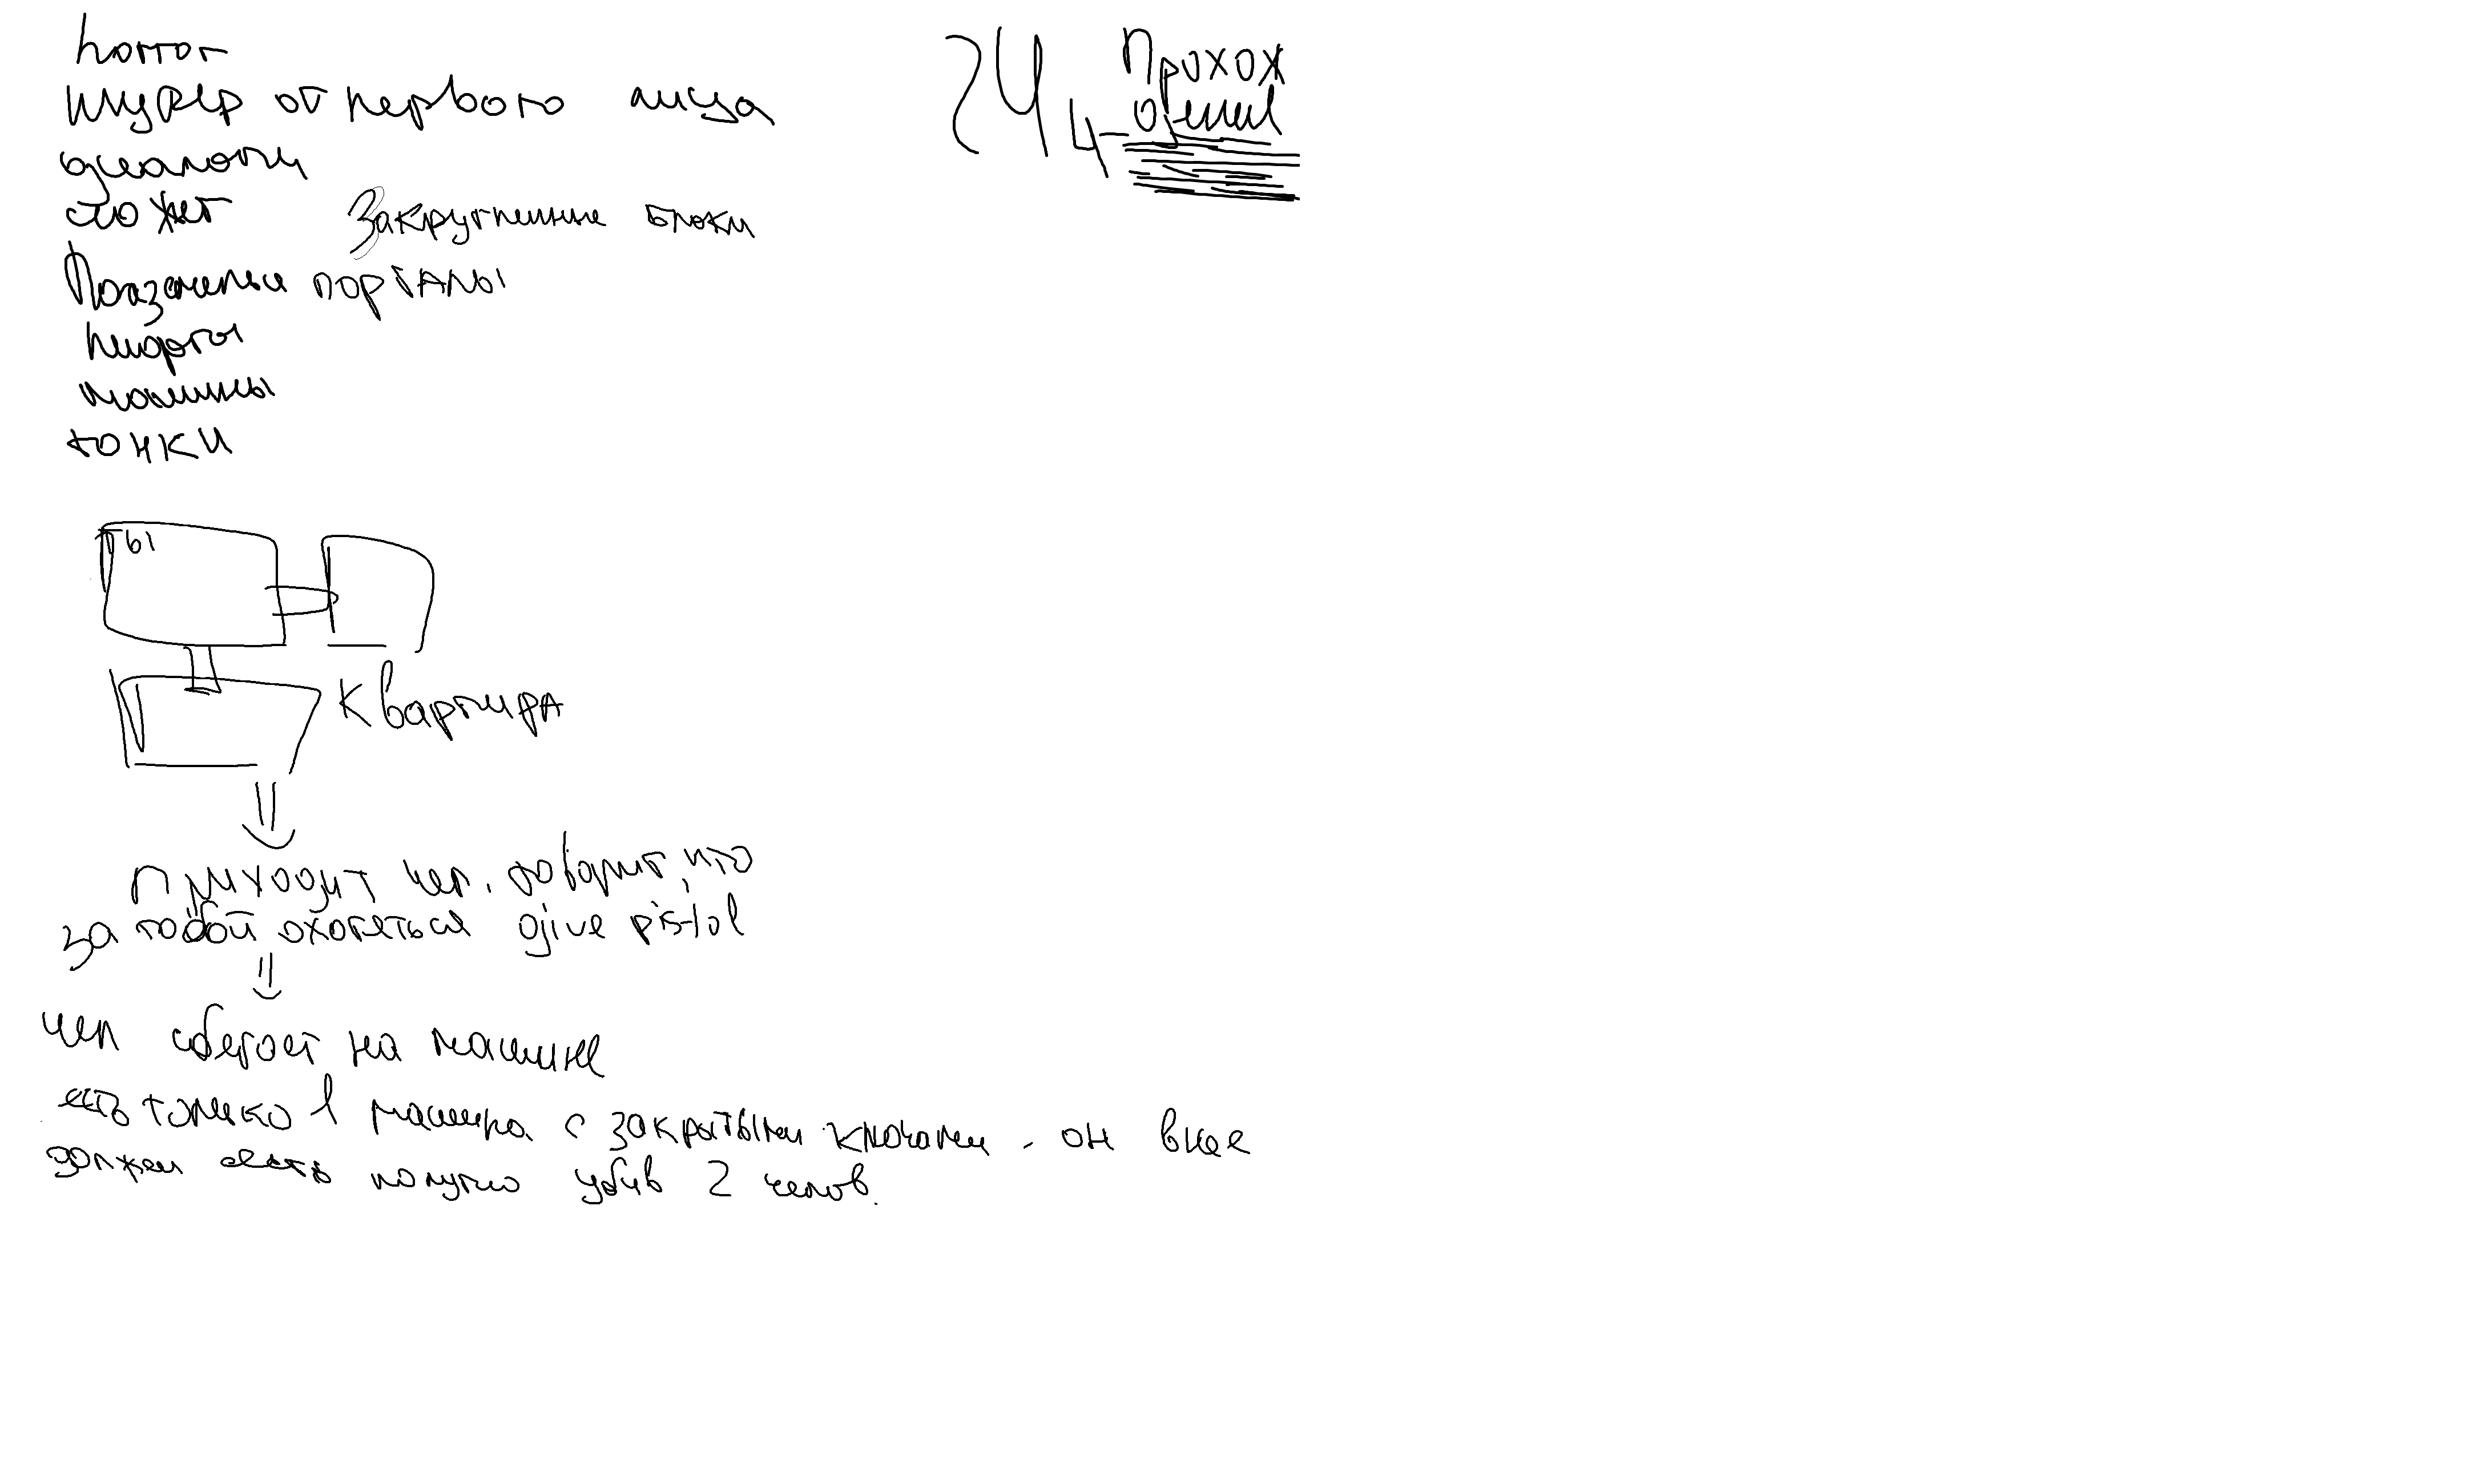 шутер от первого лица
сюжет закругленные блоки
порталы
машины
гонки
24 Прохож
дения
ты
Квартира
Приходит чел. говорит, что
за тобой охотяться give pistol
чел сбегает на машине
есть только 1 машина с закрытыми ключами - он в нее
должен сесть попутно убив 2 челов.